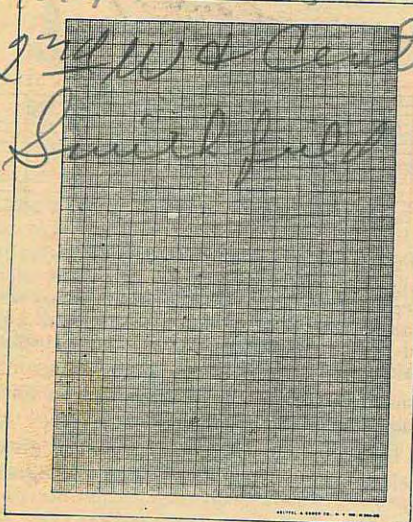 2nd W & Cent
Smithfield
KEUFFEL & ESSER CO., N. Y.